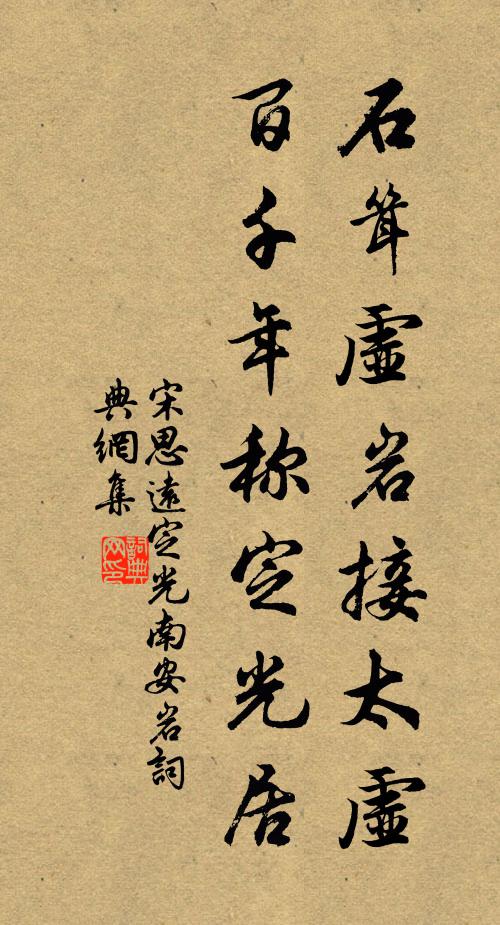 石耸虚岩接太虚
百千年称定光居
宋思遠定光南安岩詞
典網集
詞典
网印